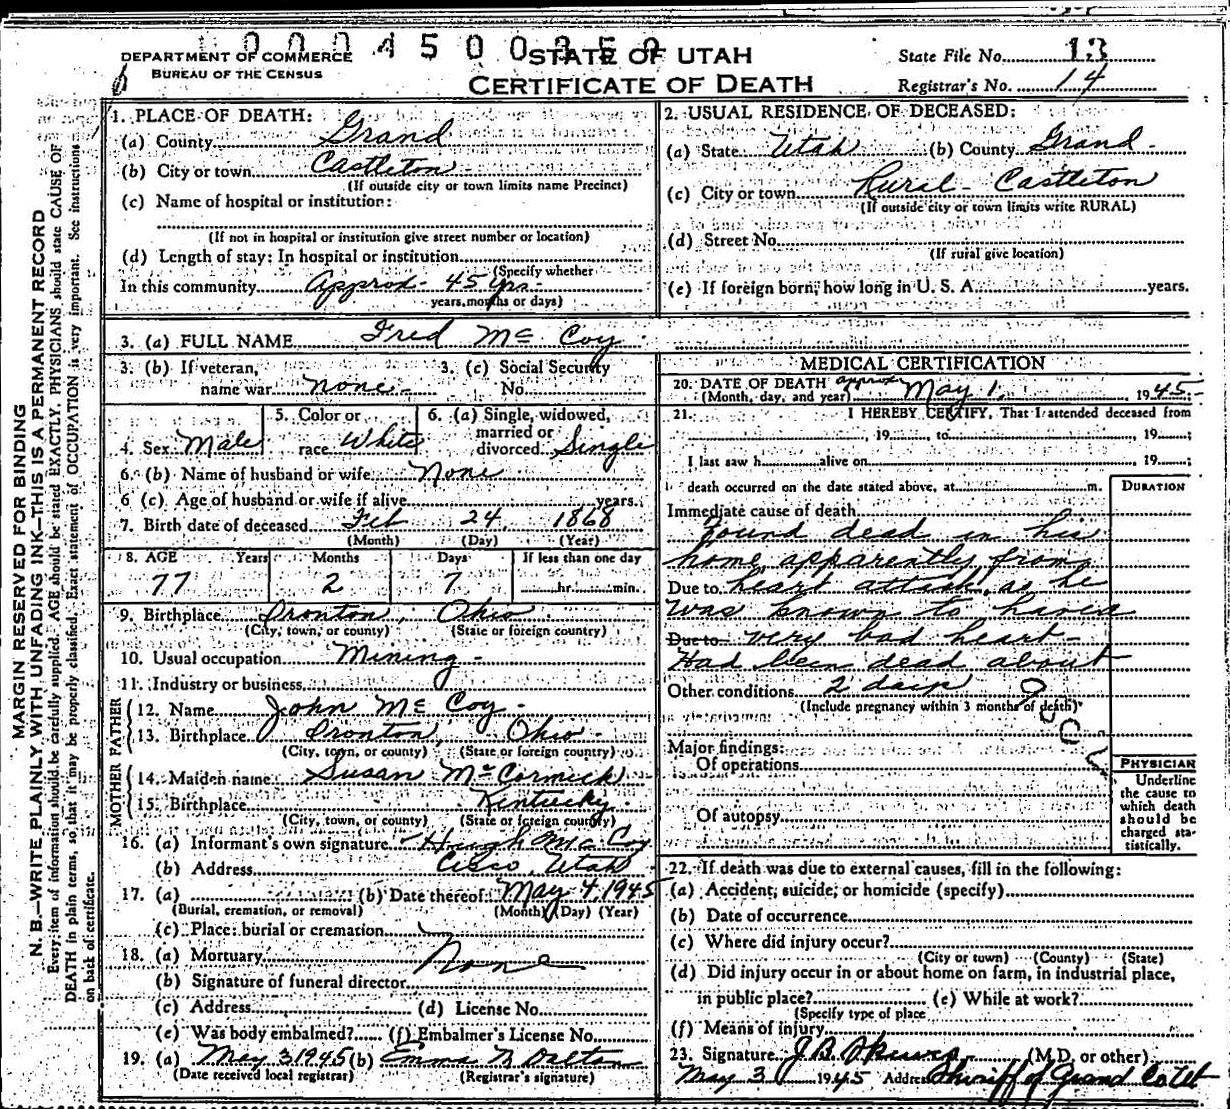 DEPARTMENT OF COMMERCE
BUREAU OF THE CENSUS
STATE OF UTAH
CERTIFICATE OF DEATH
State File No. 13
Registrar's No. 14
MARGIN RESERVED FOR BINDING
N. B.—WRITE PLAINLY WITH UNFADING INK—THIS IS A PERMANENT RECORD
Every item of information should be carefully supplied. AGE should be stated EXACTLY. PHYSICIANS should state CAUSE OF
DEATH in plain terms, so that it may be properly classified. Exact statement of OCCUPATION is very important. See instructions
on back of certificate.
1. PLACE OF DEATH:
(a) County Grand
(b) City or town Castleton
(If outside city or town limits name Precinct)
(c) Name of hospital or institution:
(If not in hospital or institution give street number or location)
(d) Length of stay: In hospital or institution
(Specify whether
In this community Approx- 45 yrs-
years, months or days)
2. USUAL RESIDENCE OF DECEASED:
(a) State Utah (b) County Grand -
(c) City or town Rural - Castleton
(If outside city or town limits write RURAL)
(d) Street No.
(If rural give location)
(e) If foreign born, how long in U. S. A. years.
3. (a) FULL NAME Fred Mc Coy
3. (b) If veteran,
name war none -
3. (c) Social Security
No.
4. Sex Male
5. Color or
race White
6. (a) Single, widowed,
married or
divorced Single
6. (b) Name of husband or wife None
6 (c) Age of husband or wife if alive years.
7. Birth date of deceased Feb 24, 1868
(Month) (Day) (Year)
8. AGE Years Months Days If less than one day
77 2 7 hr. min.
9. Birthplace Ironton, Ohio
(City, town, or county) (State or foreign country)
10. Usual occupation Mining -
11. Industry or business
FATHER
12. Name John Mc Coy -
13. Birthplace Ironton, Ohio -
(City, town, or county) (State or foreign country)
MOTHER
14. Maiden name Susan McCormick
15. Birthplace Kentucky -
(City, town, or county) (State or foreign country)
16. (a) Informant's own signature Hugh Mc Coy
(b) Address Cisco, Utah
17. (a) (b) Date thereof May 4, 1945
(Burial, cremation, or removal) (Month) (Day) (Year)
(c) Place: burial or cremation
18. (a) Mortuary None
(b) Signature of funeral director
(c) Address (d) License No.
(e) Was body embalmed? (f) Embalmer's License No.
19. (a) May 3 1945 (b) Emma M Dalton
(Date received local registrar) (Registrar's signature)
MEDICAL CERTIFICATION
20. DATE OF DEATH approx May 1, 1945-
(Month, day, and year)
21. I HEREBY CERTIFY, That I attended deceased from
, 19 , to , 19 ;
I last saw h alive on , 19 ;
death occurred on the date stated above, at m.
DURATION
Immediate cause of death
Found dead in his
home, apparently from
Due to heart attack, as he
was known to have a
Due to very bad heart -
Had been dead about
Other conditions 2 days
(Include pregnancy within 3 months of death)
Major findings:
Of operations
Of autopsy
PHYSICIAN
Underline
the cause to
which death
should be
charged sta-
tistically.
22. If death was due to external causes, fill in the following:
(a) Accident, suicide, or homicide (specify)
(b) Date of occurrence
(c) Where did injury occur?
(City or town) (County) (State)
(d) Did injury occur in or about home on farm, in industrial place,
in public place? (e) While at work?
(Specify type of place
(f) Means of injury
23. Signature J. B. (M.D. or other)
May 3 1945 Address Sheriff of Grand Co Ut